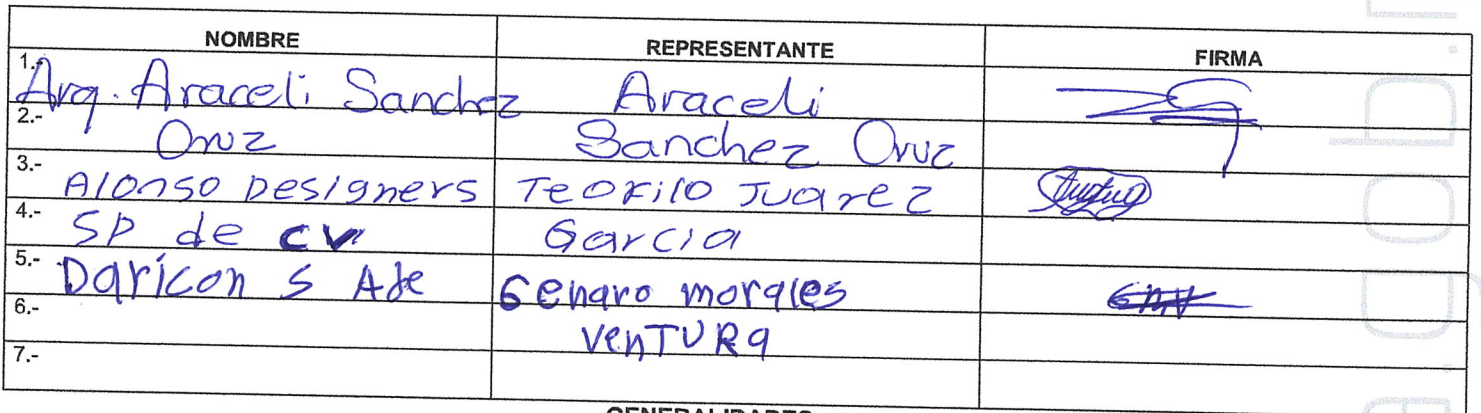 NOMBRE REPRESENTANTE FIRMA
1.- Arq. Araceli Sanchez Araceli
2.- Cruz Sanchez Cruz
3.- Alonso Designers Teofilo Juarez
4.- SP de CV Garcia
5.- Daricon S A de Genaro morales
6.- VenTURa
7.-
GENERALIDADES